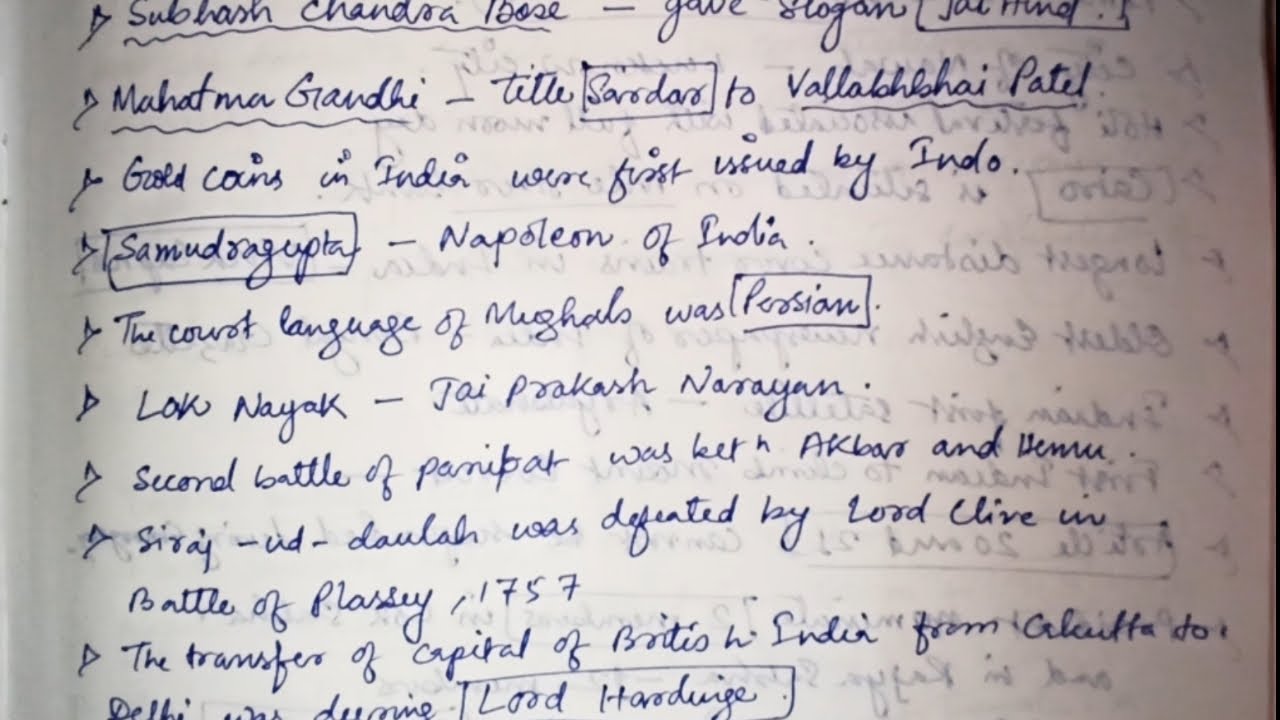 > Subhash Chandra Bose - gave slogan [Jai Hind.]
> Mahatma Gandhi - title [Sardar] to Vallabhbhai Patel.
> Gold coins in India were first issued by Indo.
> [Samudragupta] - Napoleon of India.
> The court language of Mughals was [Persian].
> Lok Nayak - Jai Prakash Narayan.
> Second battle of panipat was betn Akbar and Hemu.
> Siraj-ud-daulah was defeated by Lord Clive in
Battle of Plassey, 1757
> The transfer of capital of British India from Calcutta to
Delhi was during [Lord Hardinge.]